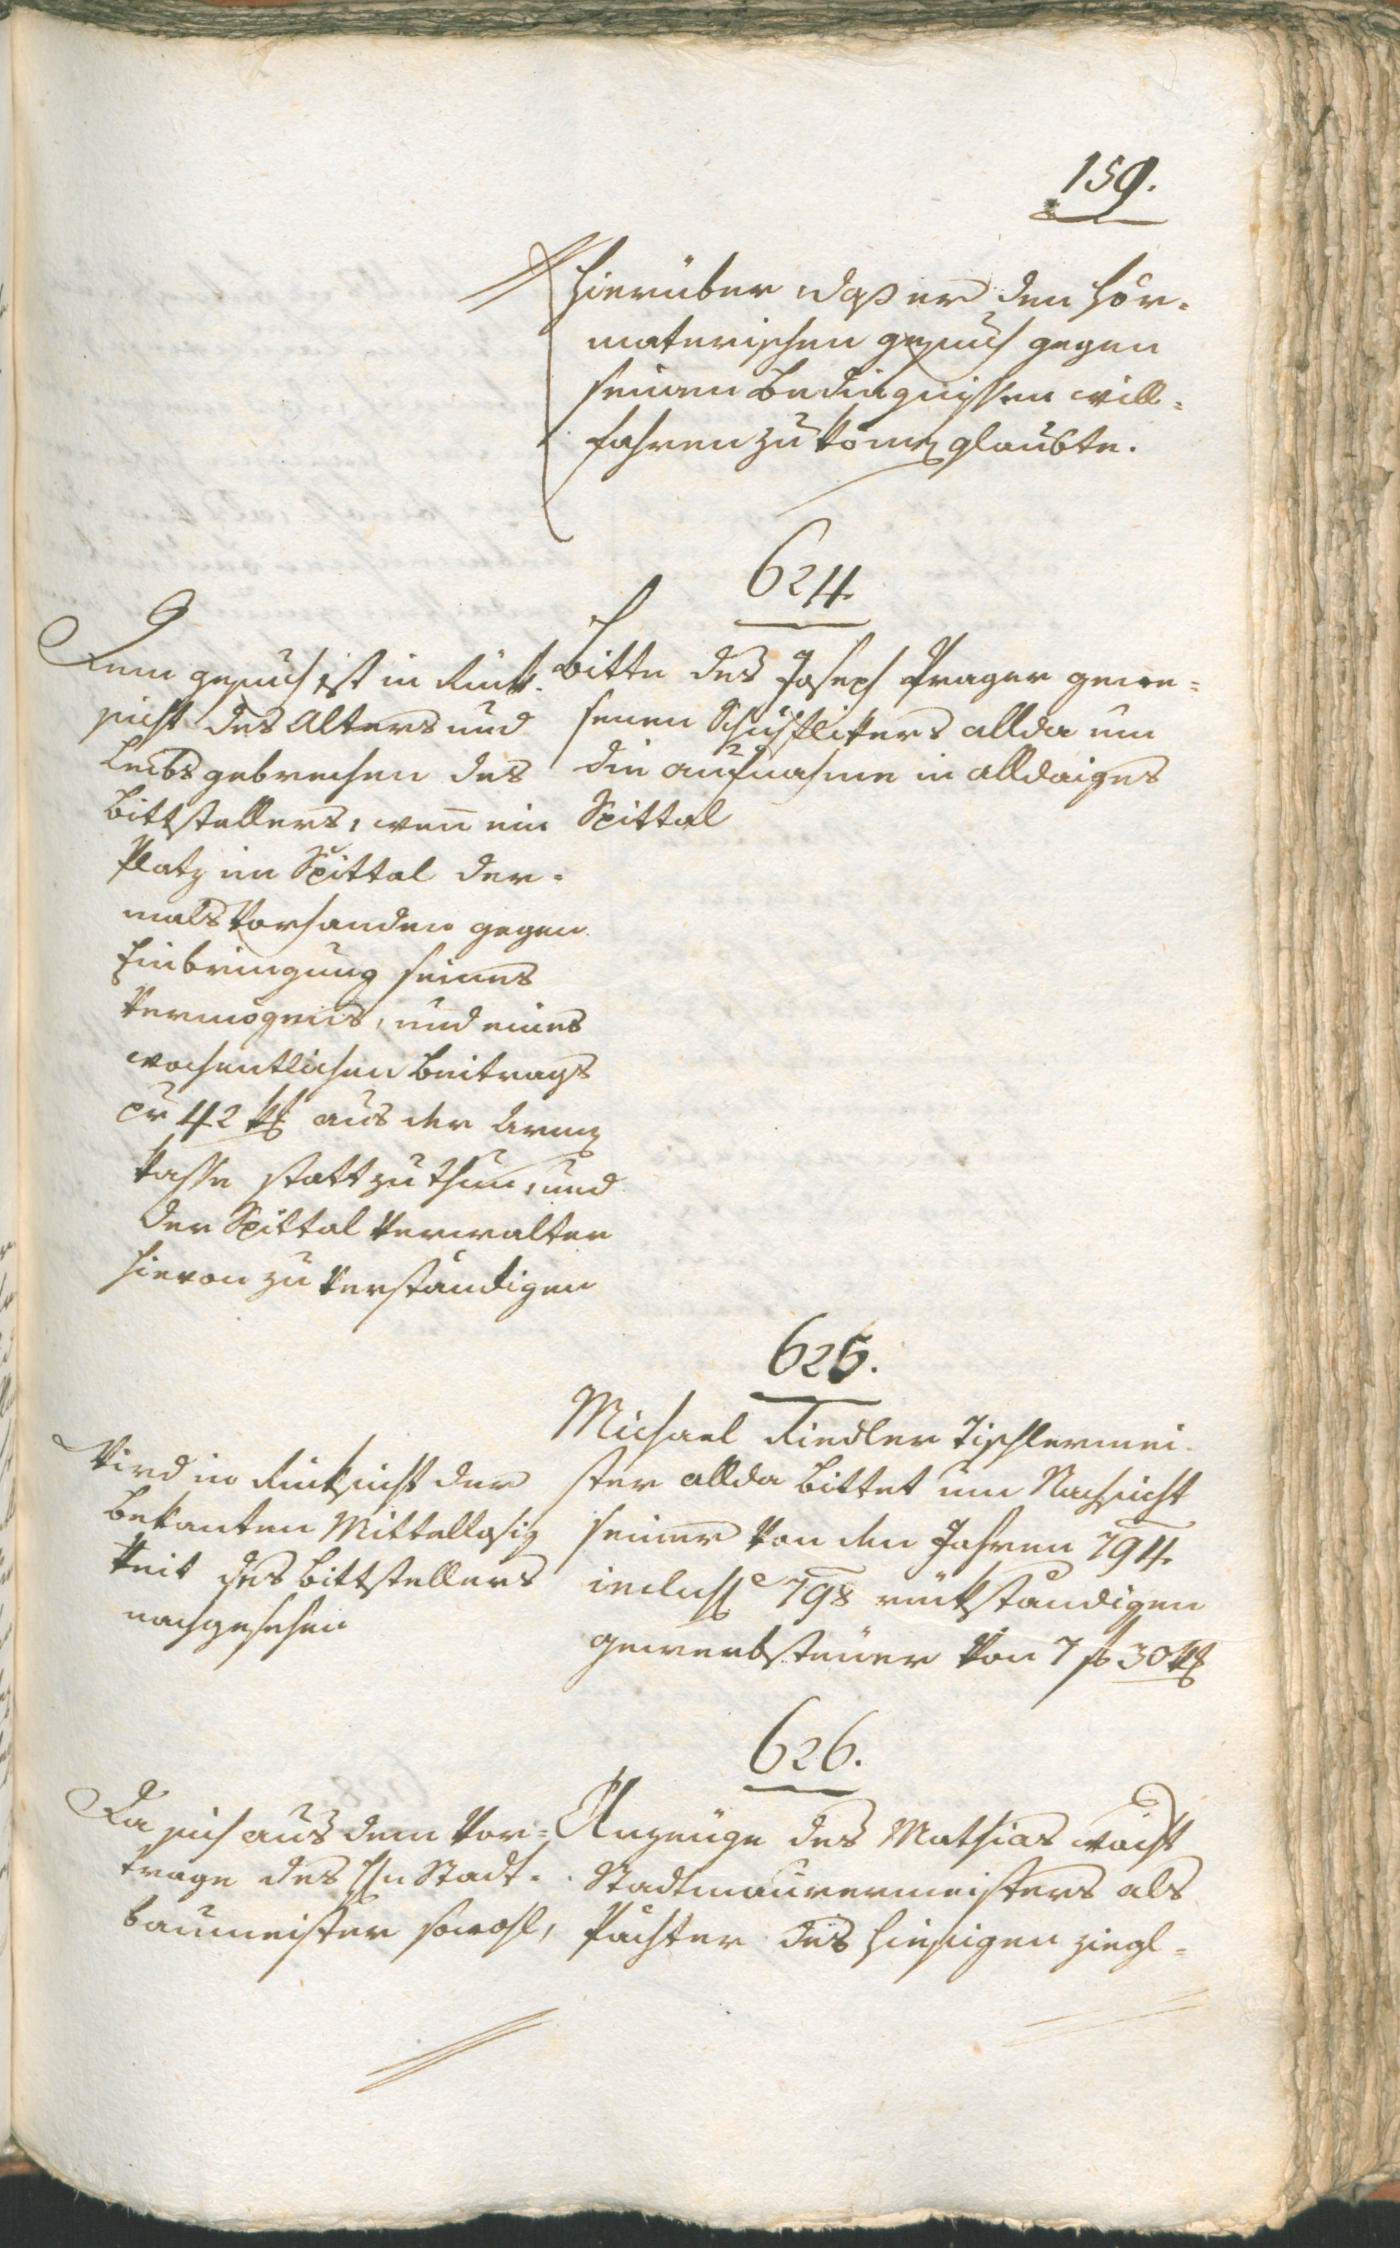 159.
hierüber, daß er den Hör-
materischen gesuch gegen
seinen Bedingnissen will-
fahren zu könen glaubte.
624.
Bitte des Joseph Prager gewe-
senen Schuhflikers allda um
die aufnahme in alldaiges
Spittal
Dem gesuch ist in Rück-
sicht des Alters und
Leibsgebrechen des
Bittstellers, wen̄ ein
Platz im Spittal der-
mals vorhanden gegen
Einbringung seines
Vermögens, und eines
wochentlichen Beitrags
pr 42 kr aus der Armen
Kasse statt zu thun, und
der Spittal Verwalter
hievon zu verständigen
625.
Michael Fiedler Tischlermei-
ster allda bittet um Nachsicht
seiner von den Jahren 794.
inclus. 798 rückständigen
gewerbsteuer von 7 f 30 kr
Wird in Rücksicht der
bekanten Mittellosig
keit des Bittstellers
nachgesehen
626.
Anzeige des Mathias
Stadtmaurermeisters als
Pächter des hiesigen ziegl-
Da sich aus dem Vor-
trage des Hn Stadt-
baumeister sowohl,